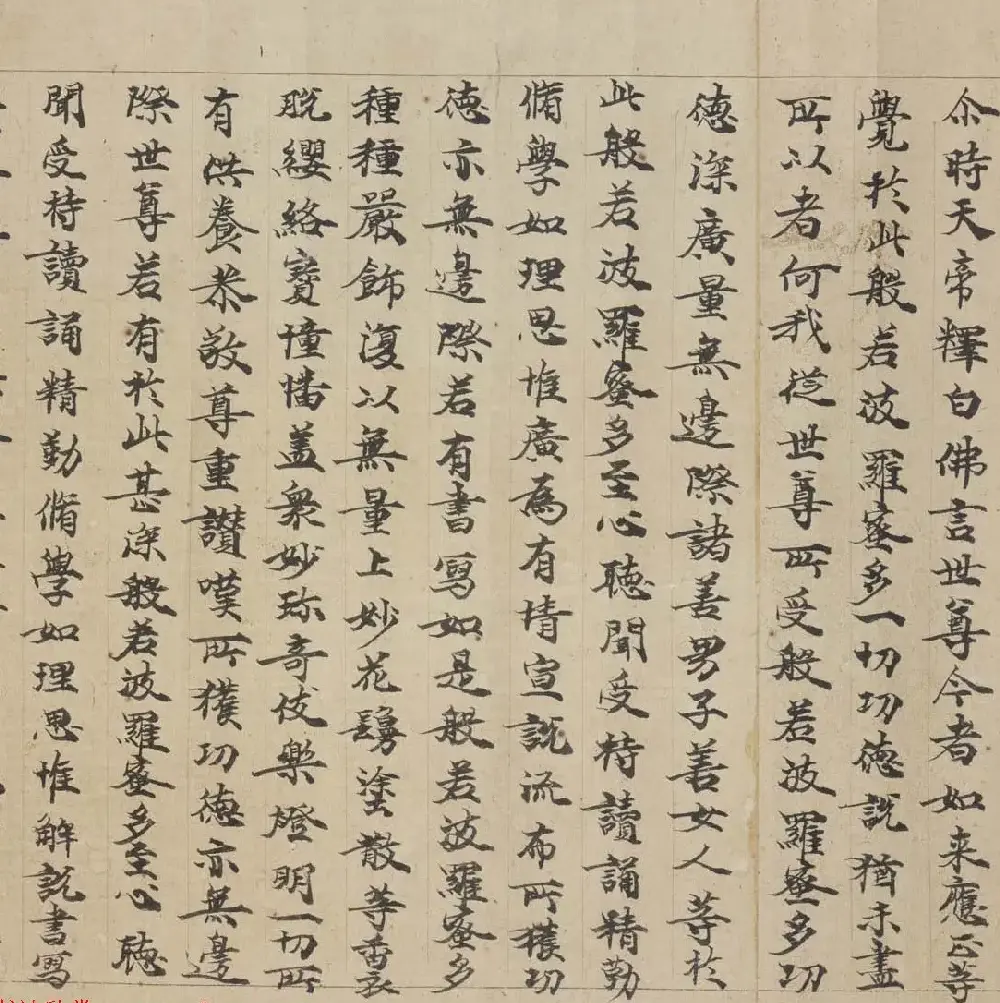 尒時天帝釋白佛言世尊今者如来應正等
覺於此般若波羅蜜多一切功德說猶未盡
所以者何我從世尊所受般若波羅蜜多功
德深廣量無邊際諸善男子善女人等於
此般若波羅蜜多至心聽聞受持讀誦精勤
脩學如理思惟廣為有情宣說流布所獲功
德亦無邊際若有書寫如是般若波羅蜜多
種種嚴飾復以無量上妙花鬘塗散等香衣
服纓絡寶幢幡盖衆妙珎奇伎樂燈明一切所
有供養恭敬尊重讚嘆所獲功德亦無邊
際世尊若有於此甚深般若波羅蜜多至心聽
聞受持讀誦精勤脩學如理思惟解說書寫